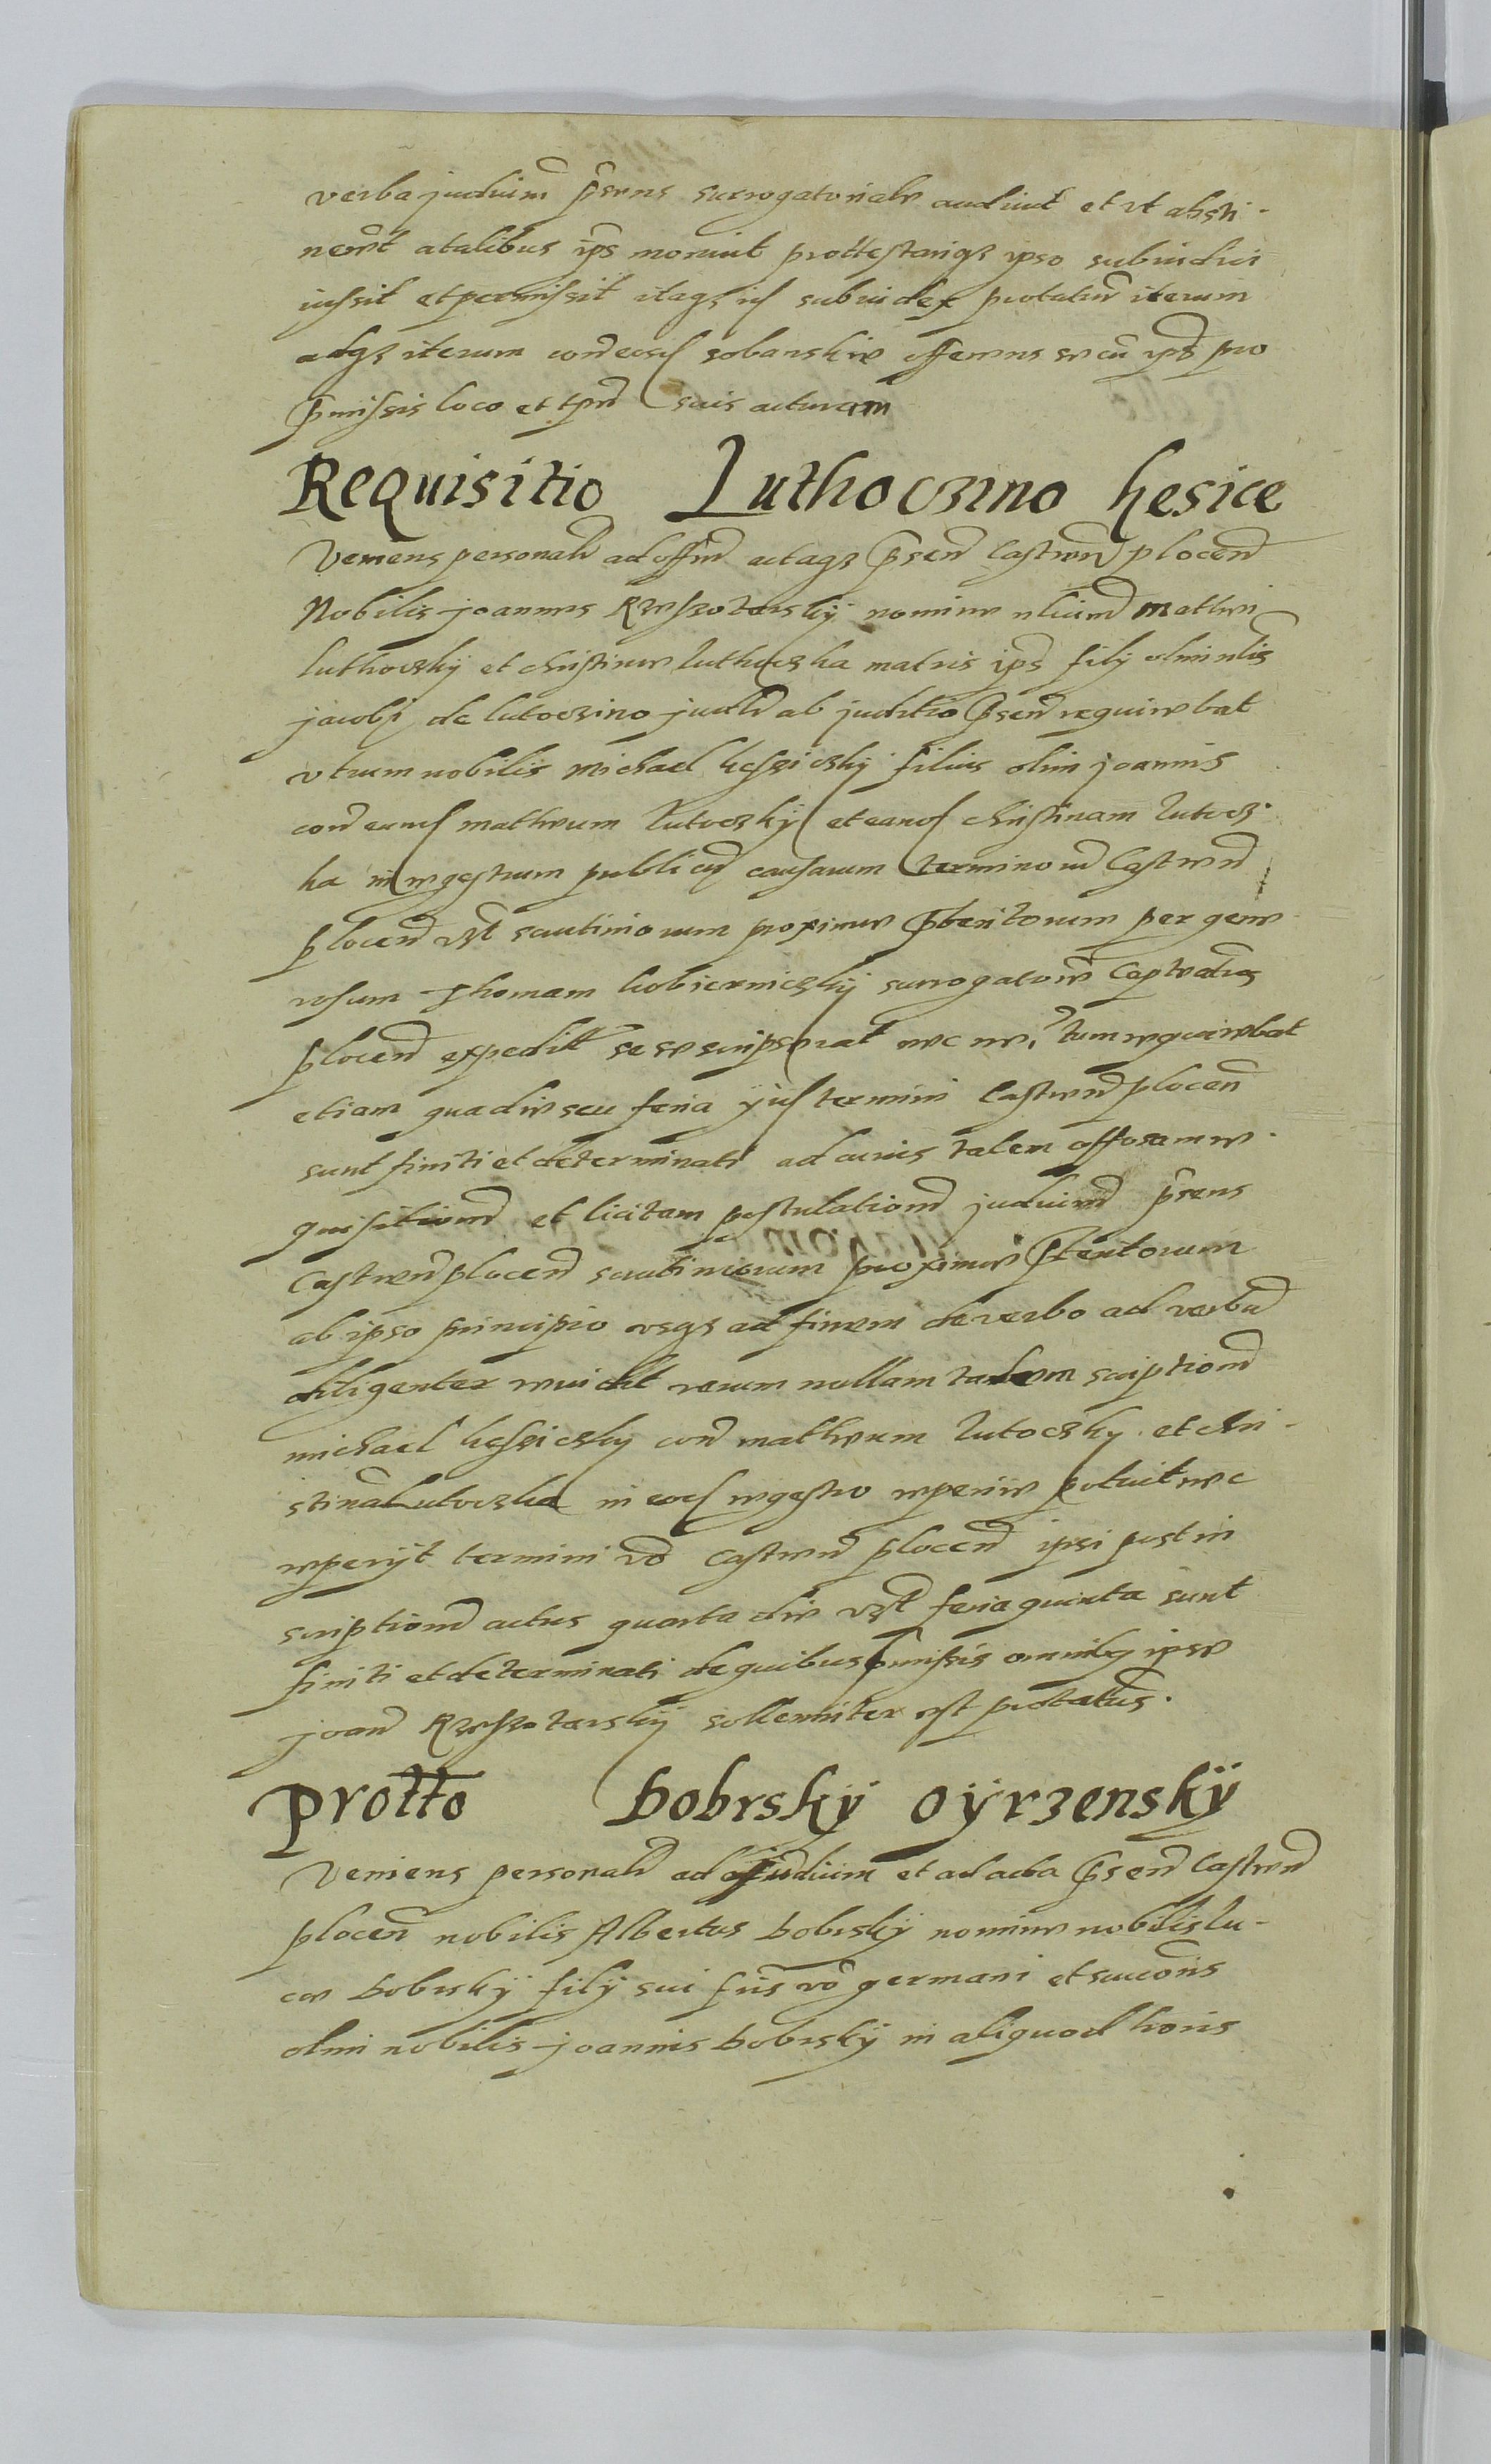 verba judicium p̃sens surrogatoriale audivit et vt absti-
nerẽt a talibus ip̃s monuit prottestariqз ipso subiudici
iussit et permissit itaqз id subiudex protatur iterum
adqз iterum con̄ eosd sobanskie offerens se cũ ipõ pro
p̃missis loco et tp̃r suis acturum
Requisitio Luthoczino kesice
Veniens personalr ad offm actaqз p̃sen Castren plocen
Nobilis joannes Rzeszotarskÿ nomine nliũm mathei
luthoczkÿ et christine luthoczka matris ip̃s filÿ olim nlis
jacobi de lutoczino judicialr ab juditio p̃sen requirebat
vtrum nobilis michael kesziczkÿ filius olim joannis
con̄ eund matheum lutoczkÿ et eand christinam lutocz-
ka in regestrum publicũ causarum terminorũ Castren
plocen vt̃ scrutiniorum proxime p̃teritorum per gene-
rosum Thomam kobierniczkÿ surrogatorem Captralẽ
plocen expedit sese scripserat nec ne, tum requirebat
etiam qua die seu feria ÿid termini Castren plocen
sunt finiti et determinati ad cuius talem offosam re-
quisitionẽ et licitam postulationẽ judicium p̃sens
Castren plocen scrutiniorum proxime p̃teritorum
ab ipso principio vsqз ad finem de verbo ad verbũ
diligenter reuidit verum nullam talem scriptionẽ
michael kesziczkÿ con̄ matheum lutoczkÿ et chri-
stinã lutoczka in eod regestro reperire potuit nec
reperÿt termini vo Castren plocen ipsi post in
scriptionẽ actus quarta die vt̃ feria quinta sunt
finiti et determinati de quibus p̃missis omnibqз ipse
joan̄ Rzeszotarskÿ sollemniter est protatus.
prot̃to bobrskÿ oÿrzenskÿ
Veniens personalr ad judicium et ad acta p̃sen Castren
plocen nobilis Albertus bobrskÿ nomine nobilis lu-
ce bobrskÿ filÿ sui frĩs vo germani et succoris
olim nobilis joannis bobrskÿ in aliquod horis